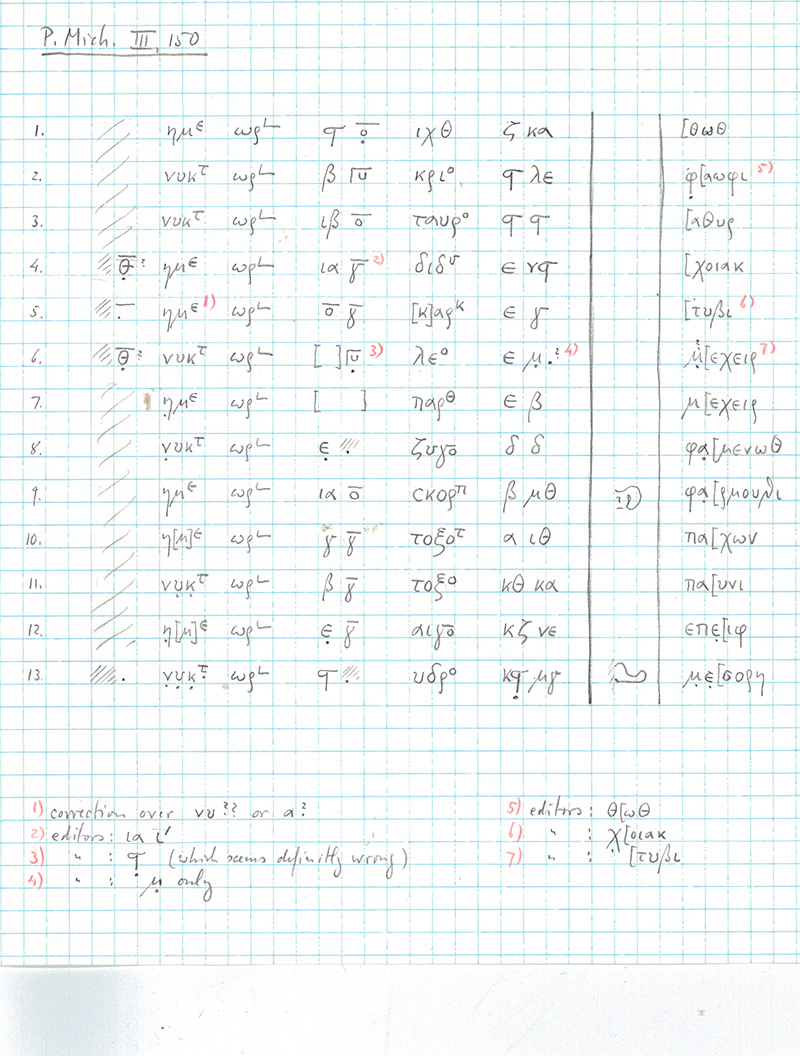 P. Mich. III, 150
1. ημ^ε ωρ^L ϥ ọ̄ ιχθ ζ κα [θωθ
2. νυκ^τ ωρ^L β Γῡ κριº ϥ λε φ̣[αωφι 5)
3. νυκ^τ ωρ^L ιβ ō ταυρº ϥ ϥ [αθυρ
4. θ̣̄? ημ^ε ωρ^L ια γ̄ 2) διδ^υ ε νϥ [χοιακ
5. ημ^ε 1) ωρ^L ō γ̄ [κ]αρ^κ ε γ [τυβι 6)
6. θ̣̄? νυκ^τ ωρ^L [ ]Γῡ̣ 3) λεº ε μ̣.? 4) μ̣[εχειρ 7)
7. η̣μ^ε ωρ^L [ ] παρ^θ ε β μ[εχειρ
8. ν̣υκ^τ ωρ^L ε̣ ζυγō δ δ φα̣[μενωθ
9. ημ^ε ωρ^L ια ō σκορ^π β μθ φα̣[ρμουθι
10. η[μ]^ε ωρ^L γ γ̄ τοξο^τ α ιθ πα[χων
11. ν̣υ̣κ̣^τ ωρ^L β γ̄ τοξº κθ κα πα[υνι
12. η̣[μ]^ε ωρ^L ε̣ γ̄ αιγō κζ νε επε̣[ιφ
13. . ν̣υ̣κ̣^τ ωρ^L ϥ υδρº κϥ̣ μγ μ̣ε̣[σορη
1) correction over νυ?? or α?
2) editors: ια ί
3) " : ϥ̣ (which seems definitly wrong)
4) " : μ̣ only
5) editors: θ[ωθ
6) " : χ̣[οιακ
7) " : [τυβι